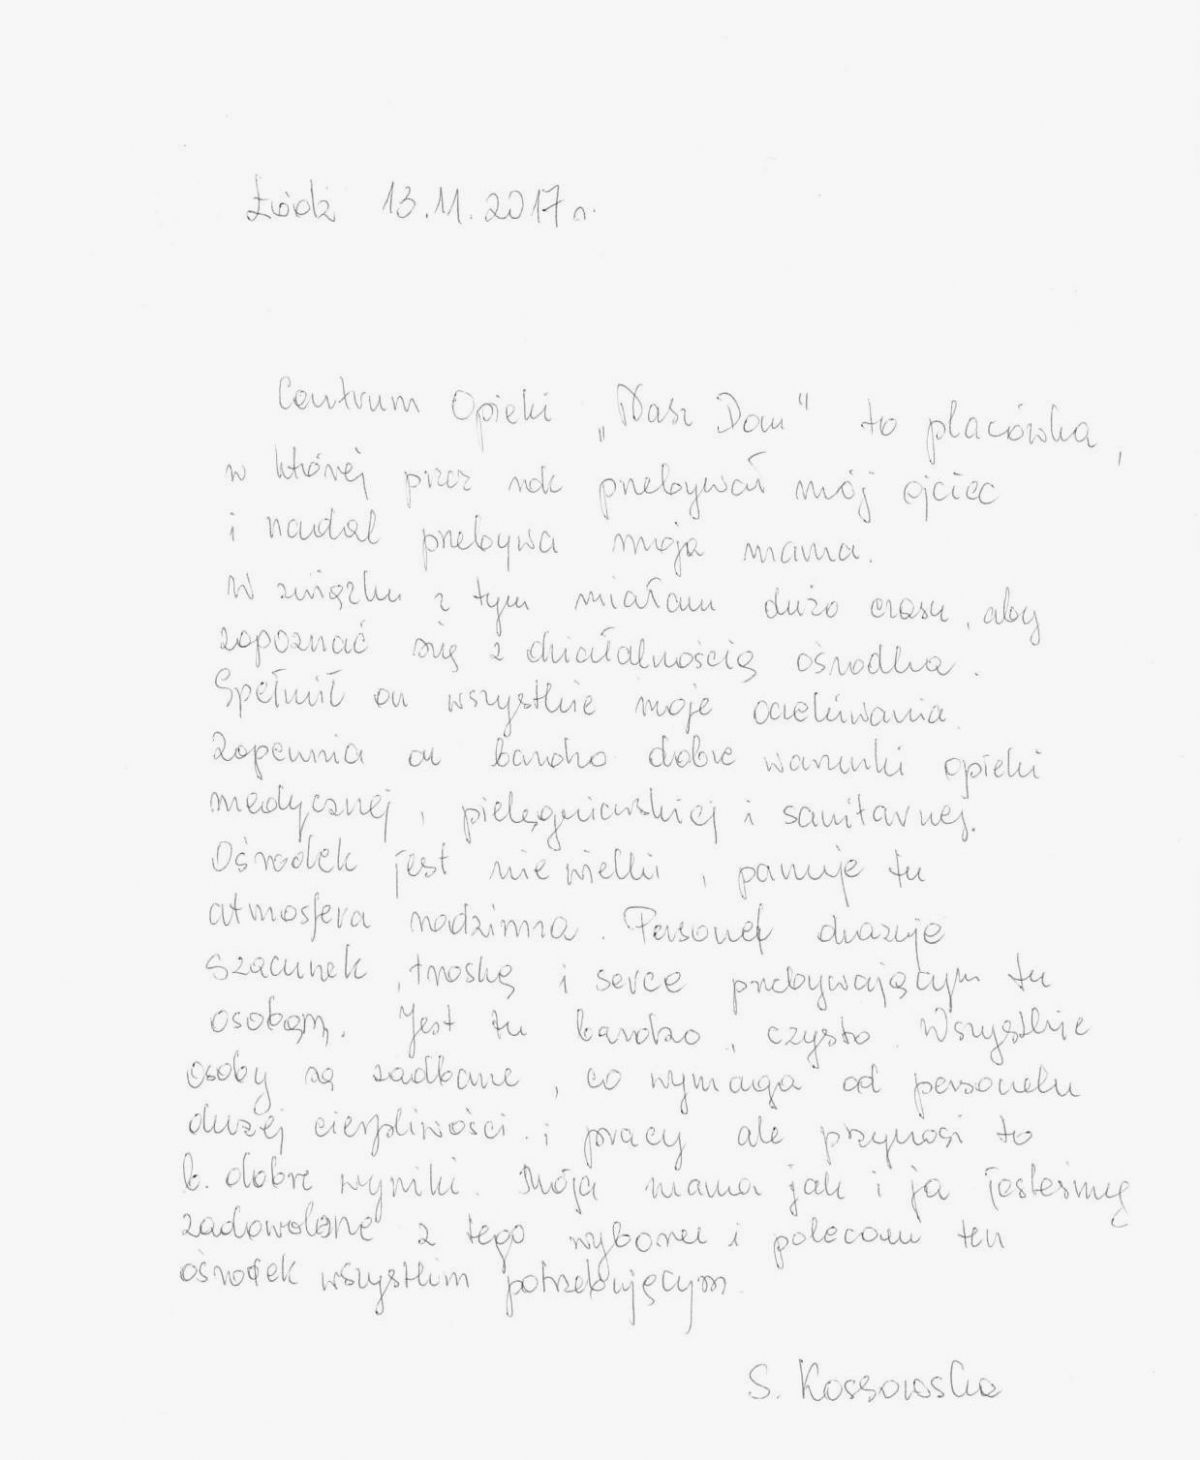 Łódź 13.11.2017 r.
Centrum Opieki „Nasz Dom" to placówka,
w której przez rok przebywał mój ojciec
i nadal przebywa moja mama.
W związku z tym miałam dużo czasu, aby
zapoznać się z działalnością ośrodka.
Spełnił on wszystkie moje oczekiwania.
Zapewnia on bardzo dobre warunki opieki
medycznej, pielęgniarskiej i sanitarnej.
Ośrodek jest niewielki, panuje tu
atmosfera rodzinna. Personel okazuje
szacunek, troskę i serce przebywającym tu
osobom. Jest tu bardzo, czysto. Wszystkie
osoby są zadbane, co wymaga od personelu
dużej cierpliwości i pracy ale przynosi to
b. dobre wyniki. Moja mama jak i ja jesteśmy
zadowolone z tego wyboru i polecam ten
ośrodek wszystkim potrzebującym.
S. Kossowska